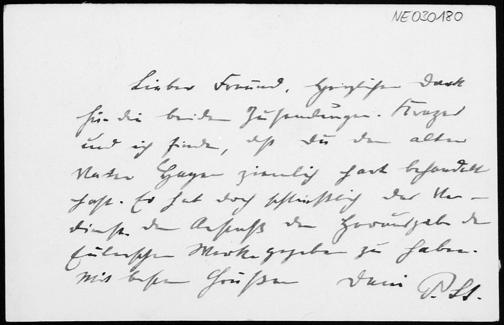 NE030180
Lieber Freund, Herzlichen Dank
für die beiden Zusendungen. Krazer
und ich finden, dß Du den alten
Vater Hagen ziemlich hart behandelt
hast. Er hat doch schließlich das Ver-
dienst den Anstoß zur Herausgabe der
Eulerschen Werke gegeben zu haben.
Mit besten Grüßen Dein P. St.